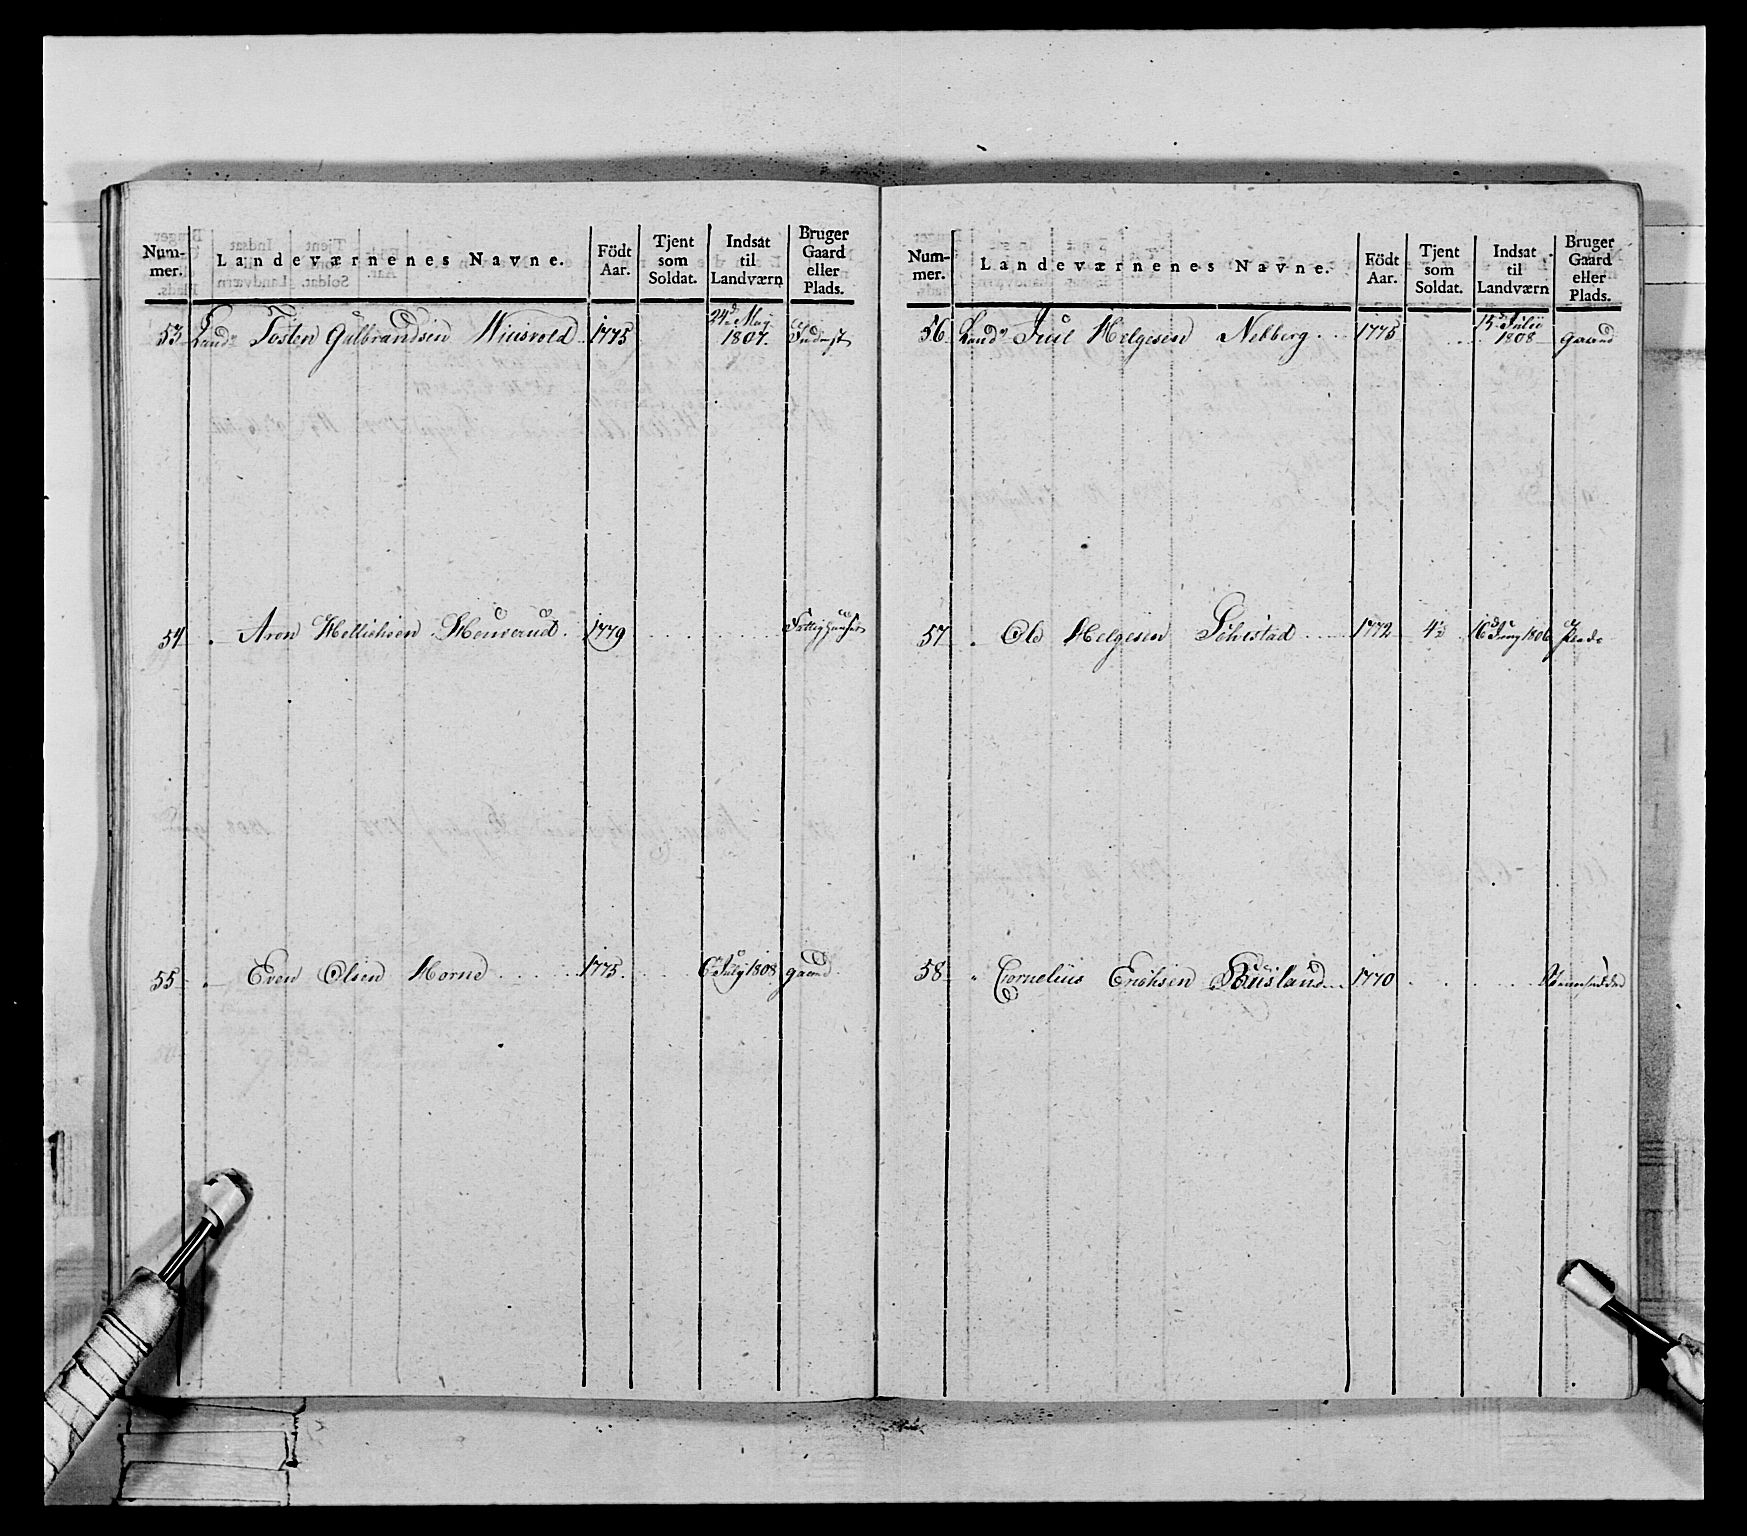 Num-
mer.
Landeværnenes Navne.
Födt
Aar.
Tjent
som
Soldat.
Indsat
til
Landværn
Bruger
Gaard
eller
Plads.
53 Land: Tosten Gulbrandsen 1775 24d May 1807 Inderst
54 Aron 1779
55 Even Olsen Horne 1775 6 July 1808 gaard
Num-
mer.
Landeværnenes Navne.
Födt
Aar.
Tjent
som
Soldat.
Indsat
til
Landværn
Bruger
Gaard
eller
Plads.
56 Land: Juul Helgesen Nebberg 1775 15d Julii 1808 gaard
57 Ole Helgesen 1772 4½ 16d 1806 Plads
58 Cornelius Erichsen 1770